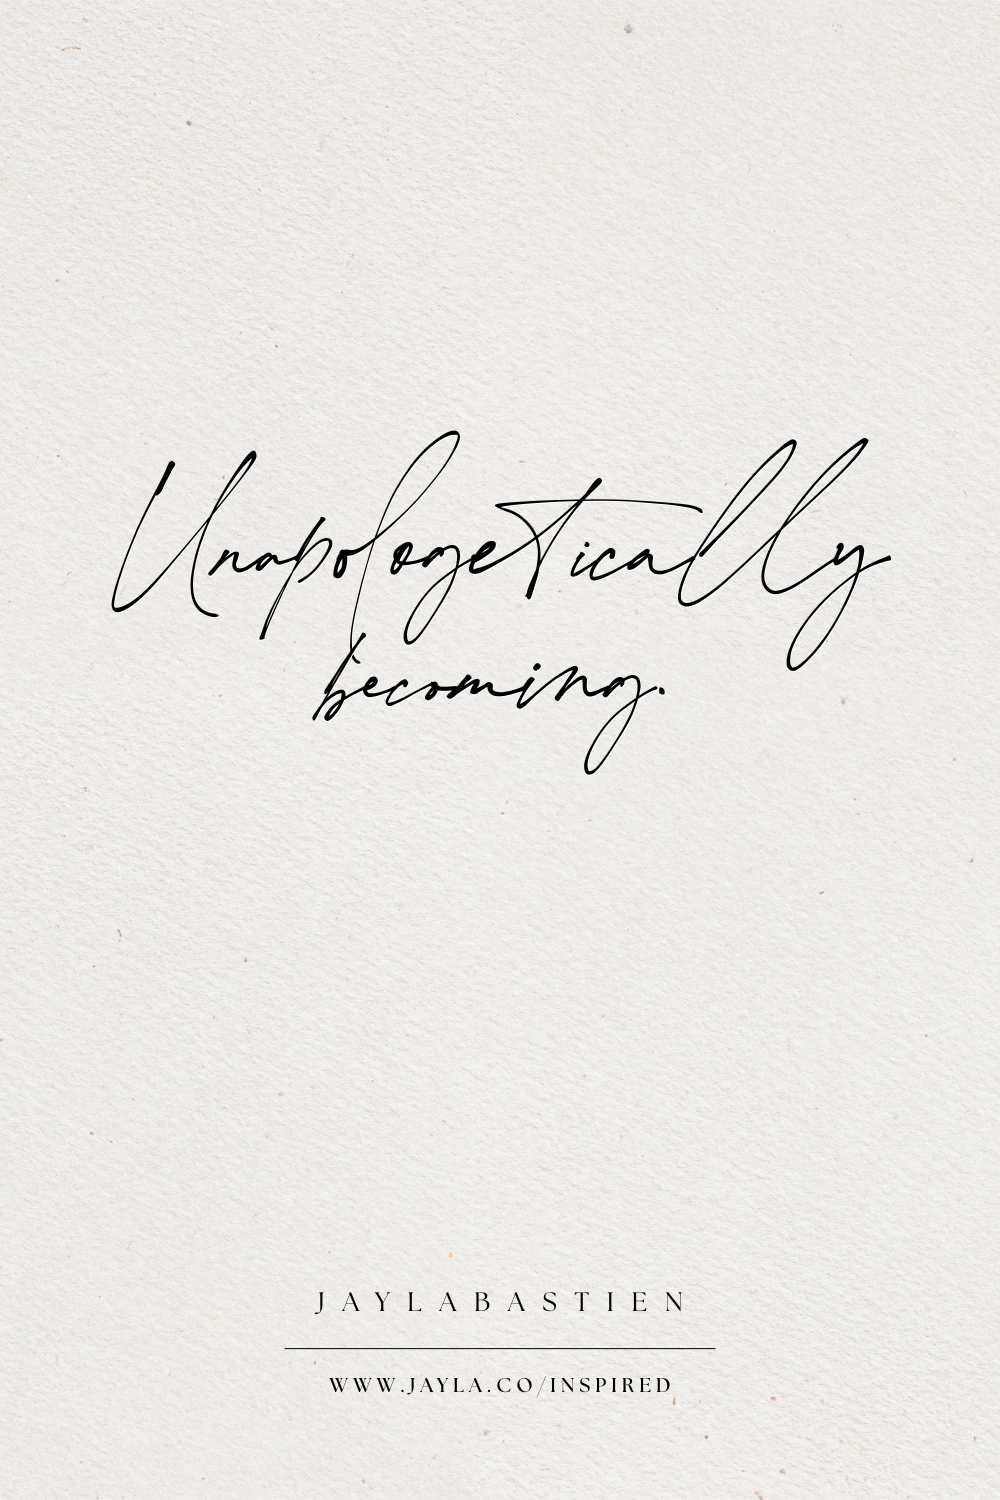 Unapologetically
becoming.
JAYLABASTIEN
WWW.JAYLA.CO/INSPIRED